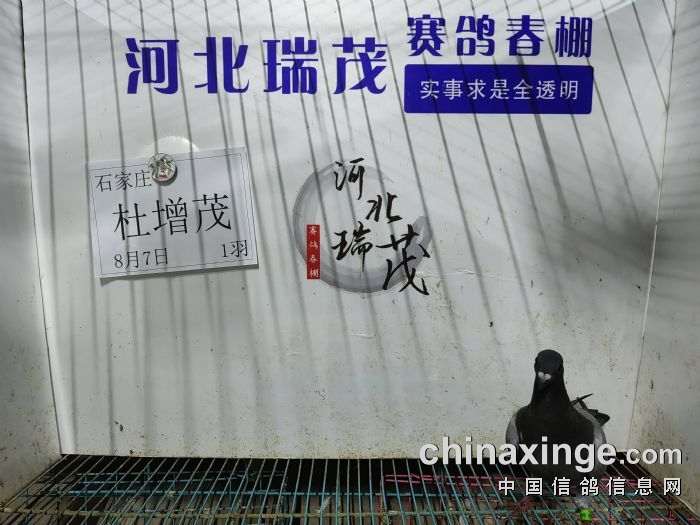 河北瑞茂 赛鸽春棚
实事求是全透明
石家庄
杜增茂
8月7日 1羽
河北瑞茂
赛鸽春棚
chinaxinge.com
中国信鸽信息网